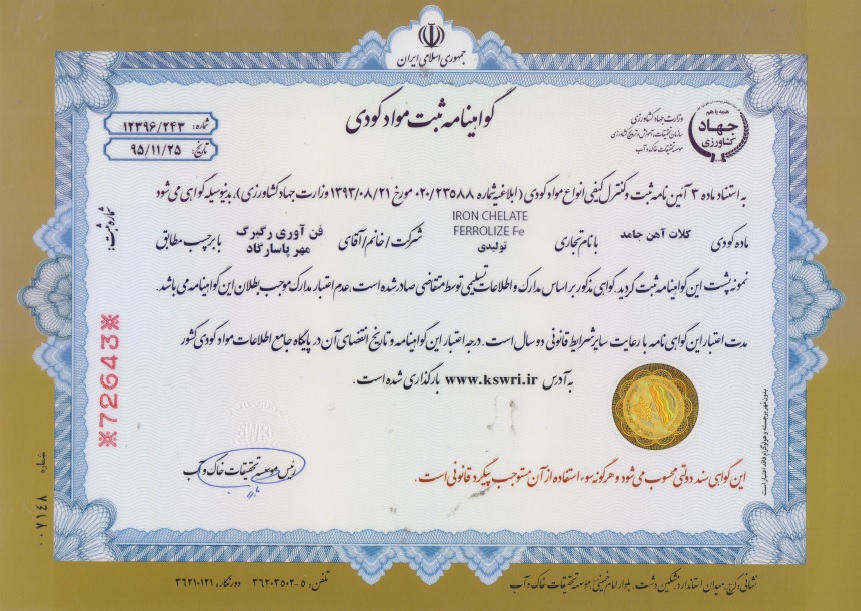 جمهوری اسلامی ایران
گواهینامه ثبت مواد کودی
شماره: ۱۲۳۹۶/۲۴۳
تاریخ: ۹۵/۱۱/۲۵
همه با هم
جهاد
کشاورزی
وزارت جهاد کشاورزی
سازمان تحقیقات، آموزش و ترویج کشاورزی
موسسه تحقیقات خاک و آب
به استناد ماده ۳ آئین نامه ثبت و کنترل کیفی انواع مواد کودی (ابلاغیه شماره ۰۲۰/۲۳۵۸۸ مورخ ۱۳۹۳/۰۸/۲۱ وزارت جهاد کشاورزی)، بدینوسیله گواهی می شود
ماده کودی کلات آهن جامد با نام تجاری IRON CHELATE FERROLIZE Fe تولیدی شرکت/خانم/آقای فن آوری رگبرگ مهر پاسارگاد با برچسب مطابق
نمونه پشت این گواهینامه ثبت گردید. گواهی مذکور بر اساس مدارک و اطلاعات تسلیمی توسط متقاضی صادر شده است، عدم اعتبار مدارک موجب بطلان این گواهینامه می باشد.
مدت اعتبار این گواهی نامه با رعایت سایر شرایط قانونی دو سال است. درجه اعتبار این گواهینامه و تاریخ انقضای آن در پایگاه جامع اطلاعات مواد کودی کشور
به آدرس www.kswri.ir بارگذاری شده است.
شماره ثبت:
※72643※
رئیس موسسه تحقیقات خاک و آب
این گواهی سند دولتی محسوب می شود و هرگونه سوء استفاده از آن مستوجب پیگرد قانونی است.
بدون مهر برجسته و هولوگرام فاقد اعتبار است
شماره ۰۰۷۱۴۸
نشانی: کرج، میدان استاندارد، مشکین دشت، بلوار امام خمینی، موسسه تحقیقات خاک و آب
تلفن: ۵-۳۶۲۰۳۵۰۲ دورنگار: ۳۶۲۱۰۱۲۱